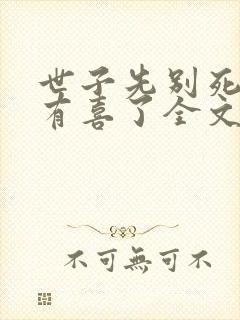 世子先别死
有喜了全文
不可無可不